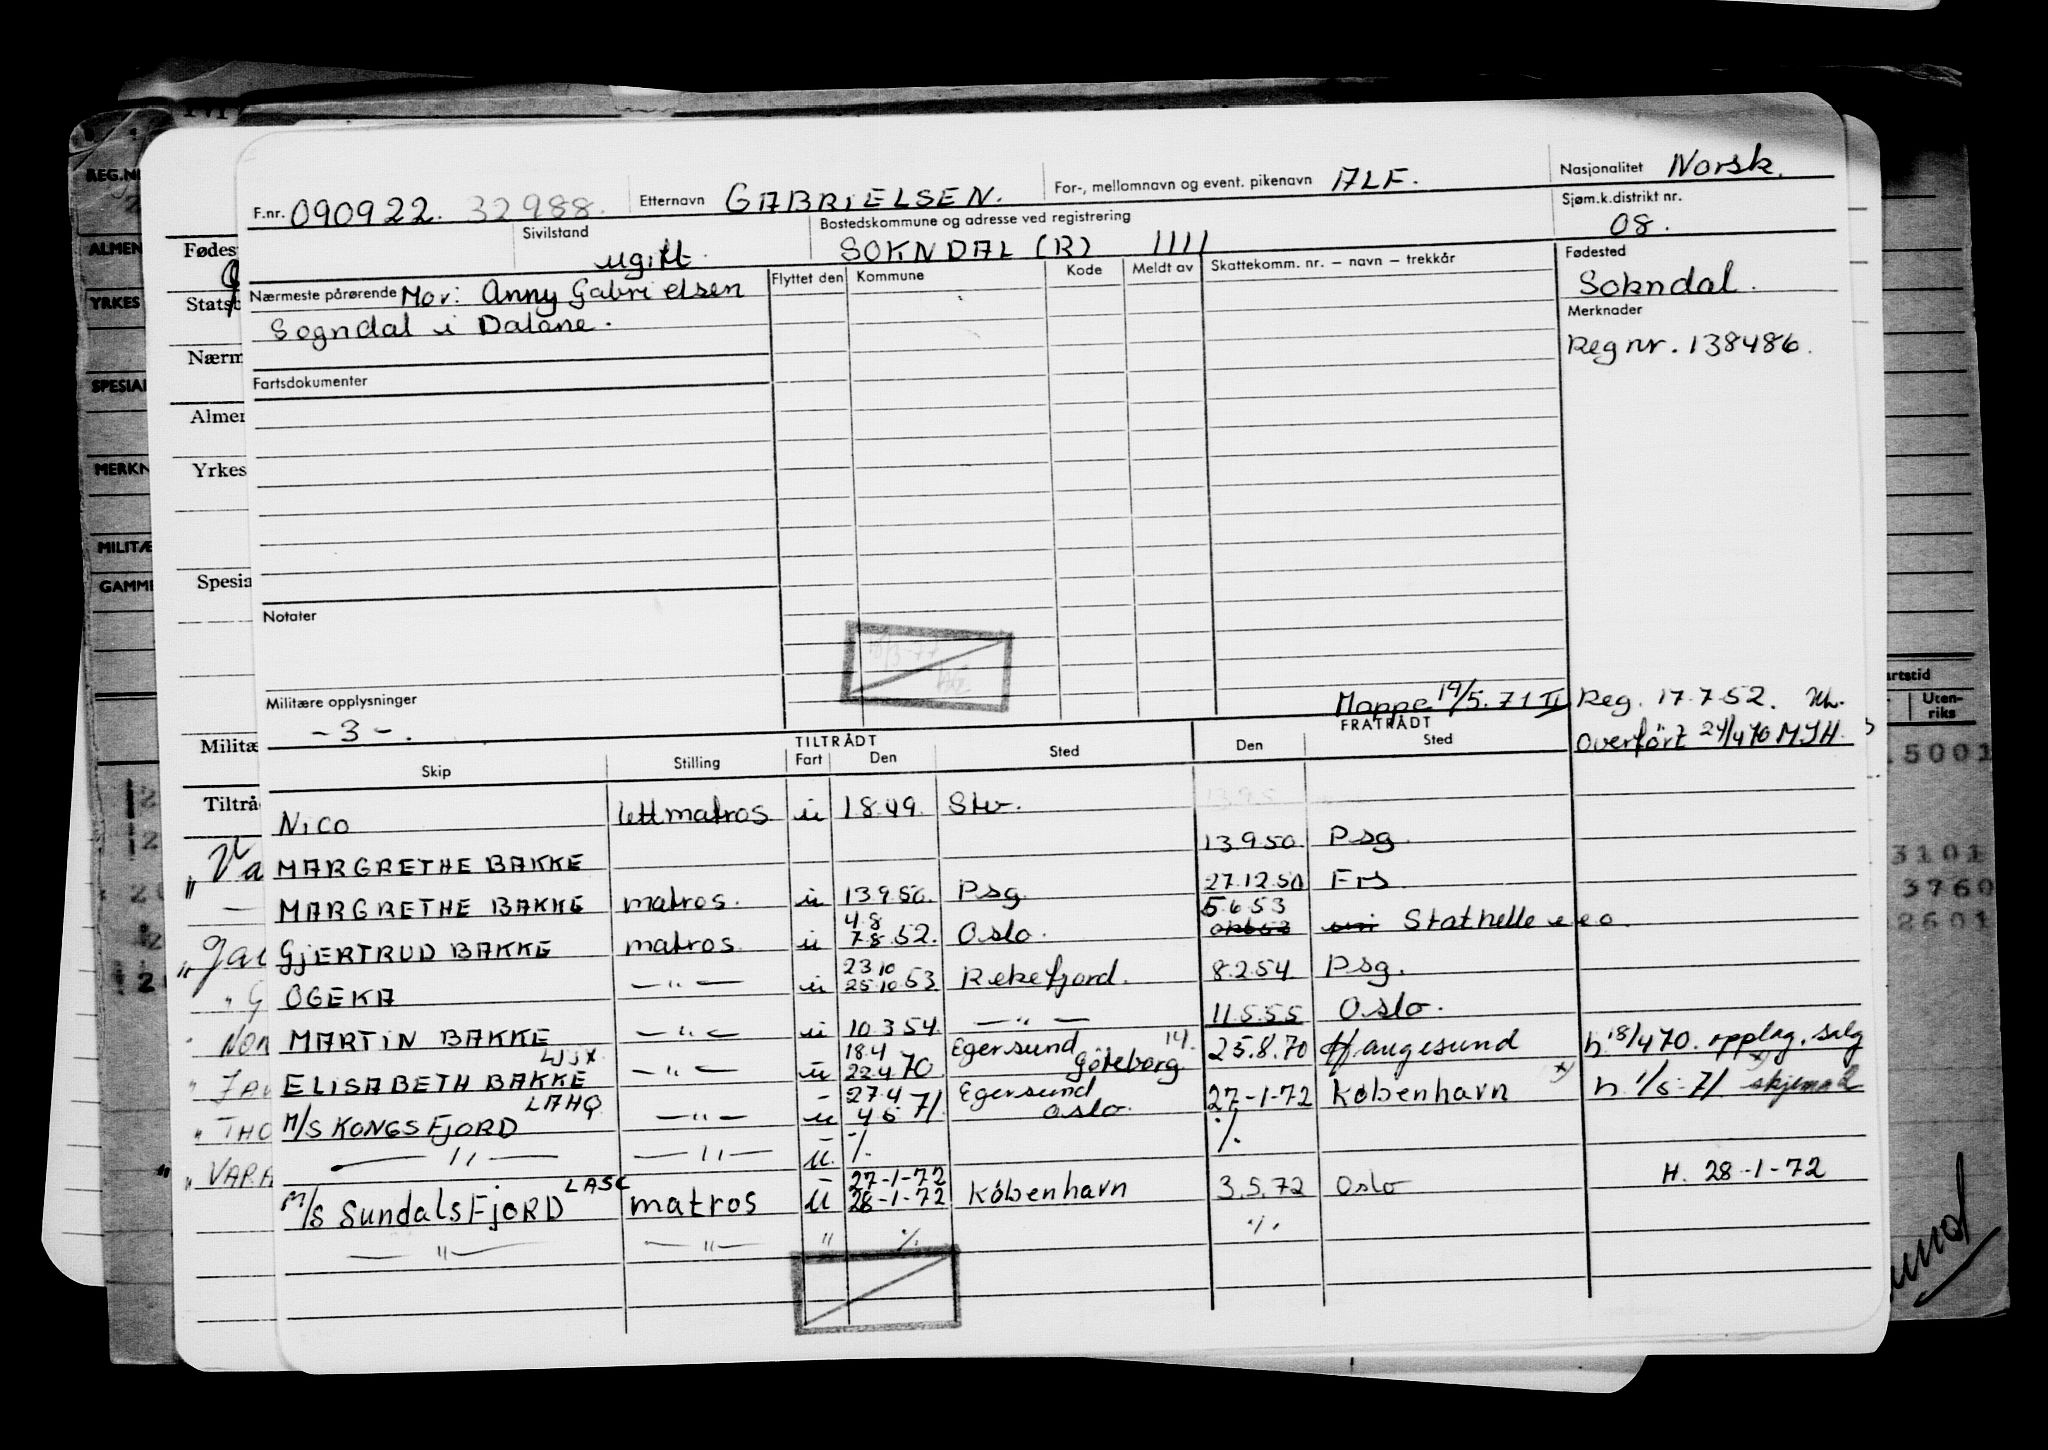 F.nr. 090922. 32988. Etternavn GABRIELSEN. For-, mellomnavn og event. pikenavn ALF. Nasjonalitet Norsk.
Sivilstand ugift. Bostedskommune og adresse ved registrering SOKNDAL (R) 1111 Sjøm.k.distrikt nr. 08.
Nærmeste pårørende Mor: Anny Gabrielsen Flyttet den Kommune Kode Meldt av Skattekomm. nr. – navn – trekkår Fødested Sokndal.
Sogndal i Dalane. Merknader
Reg nr. 138486.
Fartsdokumenter
Notater
Militære opplysninger Mappe 19/5.71 II Reg. 17.7.52.
-3-. Overført 24/4 70 MJH.
TILTRÅDT FRATRÅDT
Skip Stilling Fart Den Sted Den Sted
NICO lettmatros u 1.8.49. Stv.
MARGRETHE BAKKE 13.9.50. Psg.
MARGRETHE BAKKE matros. u 13.9.50. Psg. 27.12.50 Frs
GJERTRUD BAKKE matros. u 4.8 7.8.52. Oslo. 5.6.53 Stathelle e e o.
OGEKA —"— u 23.10 25.10 53 Rekefjord. 8.2.54 Psg.
MARTIN BAKKE —"— u 10.3.54. —"— 11.5.55 Oslo.
ELISABETH BAKKE LJJX. —"— u 18.4 22.4 70 Egersund Göteborg 25.8.70 Haugesund h. 18/4 70. opplag. salg
M/S KONGSFJORD LAHQ —"— u 27.4 4.5 71. Egersund Oslo. 27-1-72 København x) h. 1/5-71
—"— —"— u. ·/. ·/.
M/S SUNDALSFJORD LASC matros u 27-1-72 28-1-72 København 3.5.72 Oslo H. 28-1-72
—"— —"— " ·/. ·/.
REG.NR
ALMEN
YRKES
SPESIAL
MERKN
MILITÆ
GAMME
Fødes
Stats
Nærm
Almer
Yrkes
Spesia
Militæ
Tiltrå
Va
Jan
G
Non
Jan
THO
VARA
artstid
Uten-
riks
5001
3101
3760
2601